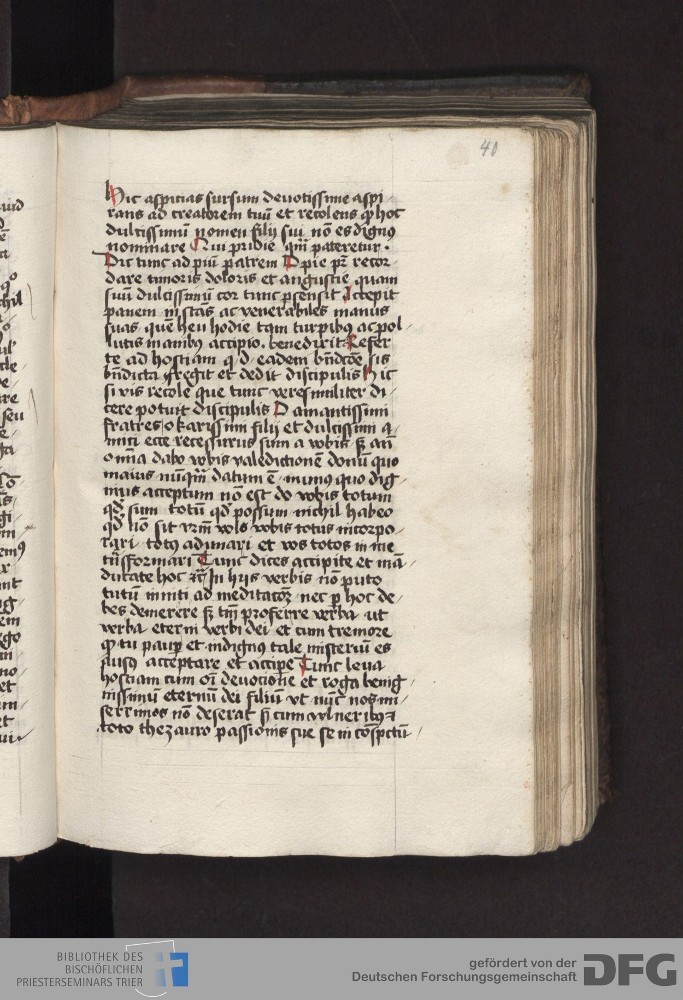 40
Hic aspicias sursum deuotissime aspi
rans ad creatorem tuū et recolens qͥ hoc
dulcissimū nomen filij sui nō es dignus
nominare Qui pridie qm̄ pateretur.
Dic tunc ad piū patrem O pie pr̄ recor
dare timoris doloris et angustie quam
suū dulcissimū cor tunc psensit Accepit
panem in sctās ac venerabiles manus
suas quē heu hodie tqm turpibꝫ ac pol
lutis manibꝫ accipio. benedixit Refer
te ad hostiam q d eadem bn̄dcōe sis
bn̄dicta fregit et dedit discipulis Hic
si vis recole que tunc veresimiliter di
cere potuit discipulis O amantissimi
fratres o karissimi filij et dulcissimi a
mici ecce recessurus sum a vobis sꝫ an̄
omīa dabo vobis valedictionē donū quo
maius nūqm̄ datum ē munꝰ quo dig
nius acceptum nō est do vobis totum
qd sum totū qd possum nichil habeo
qd nō sit vr̄m volo vobis totus incorpo
rari totꝰ adunari et vos totos in me
trāsformari Tunc dices accipite et mā
ducate hoc In hijs verbis nō puto
tutū initi ad meditatōꝫ nec p hoc de
bes demerere sꝫ tm̄ proferre verba ut
verba eterni verbi dei et cum tremore
qͥ tu paup et indignꝰ tale misteriū es
ausꝰ acceptare et accipe Tunc leua
hostiam cum oī deuotione et roga benig
nissimū eternū dei filiū vt nūc nos mi
serrimos nō deserat sꝫ cum vulneribꝫ ⁊
toto thezauro passionis sue se in cōspctū
BIBLIOTHEK DES
BISCHÖFLICHEN
PRIESTERSEMINARS TRIER
gefördert von der
Deutschen Forschungsgemeinschaft
DFG